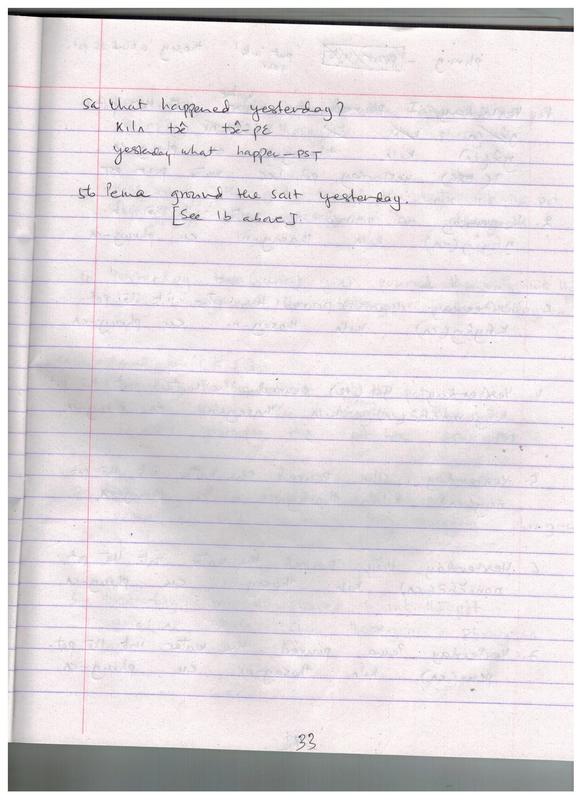 5a What happened yesterday?
kiln tɛ̂ tɛ̂-pɛ
yesterday what happen-PST
5b Pema ground the salt yesterday.
[See 1b above].
33